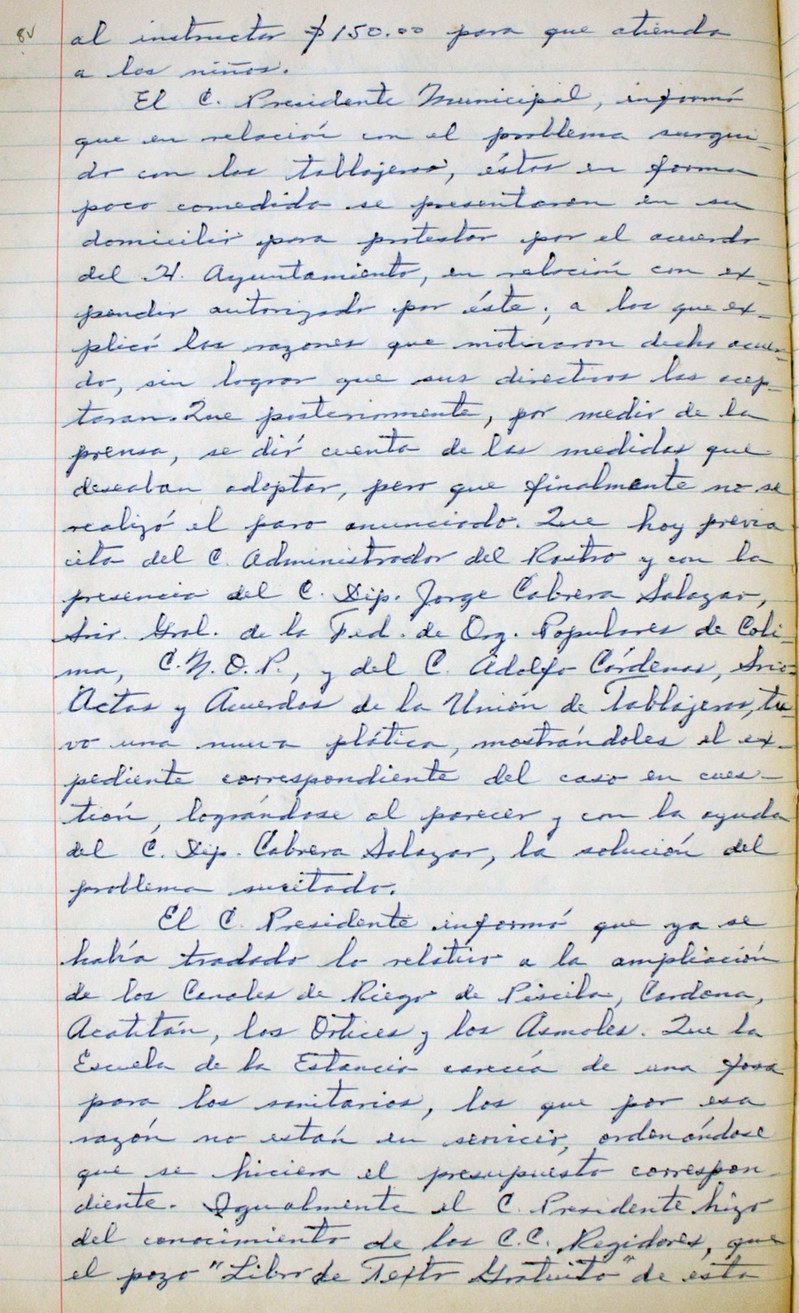 8v
al instructor $150.00 para que atienda
a los niños.
El C. Presidente Municipal, informó
que en relación con el problema surgui-
do con los tablajeros, éstos en forma
poco comedida se presentaron en su
domicilio para protestar por el acuerdo
del H. Ayuntamiento, en relación con ex-
pendio autorizado por éste; a los que ex-
plicó las razones que motivaron dicho acuer-
do, sin lograr que sus directivos las acep-
taran. Que posteriormente, por medio de la
prensa, se dió cuenta de las medidas que
deseaban adoptar, pero que finalmente no se
realizó el paro anunciado. Que hoy previa
cita del C. Administrador del Rastro y con la
presencia del C. Dip. Jorge Cabrera Salazar,
Srio. Gral. de la Fed. de Org. Populares de Coli-
ma, C.N.O.P., y del C. Adolfo Cárdenas, Srio.
Actas y Acuerdos de la Unión de Tablajeros, tu-
vo una nueva plática, mostrándoles el ex-
pediente correspondiente del caso en cues-
tión, lográndose al parecer y con la ayuda
del C. Dip. Cabrera Salazar, la solución del
problema sucitado.
El C. Presidente informó que ya se
había tradado lo relativo a la ampliación
de los Canales de Riego de Piscila, Cardona,
Acatitán, los Ortices y los Asmoles. Que la
Escuela de la Estancia carecía de una fosa
para los sanitarios, los que por esa
razón no están en servicio, ordenándose
que se hiciera el presupuesto correspon-
diente. Igualmente el C. Presidente hizo
del conocimiento de los C.C. Regidores, que
el pozo "Libro de Texto Gratuito" de esta